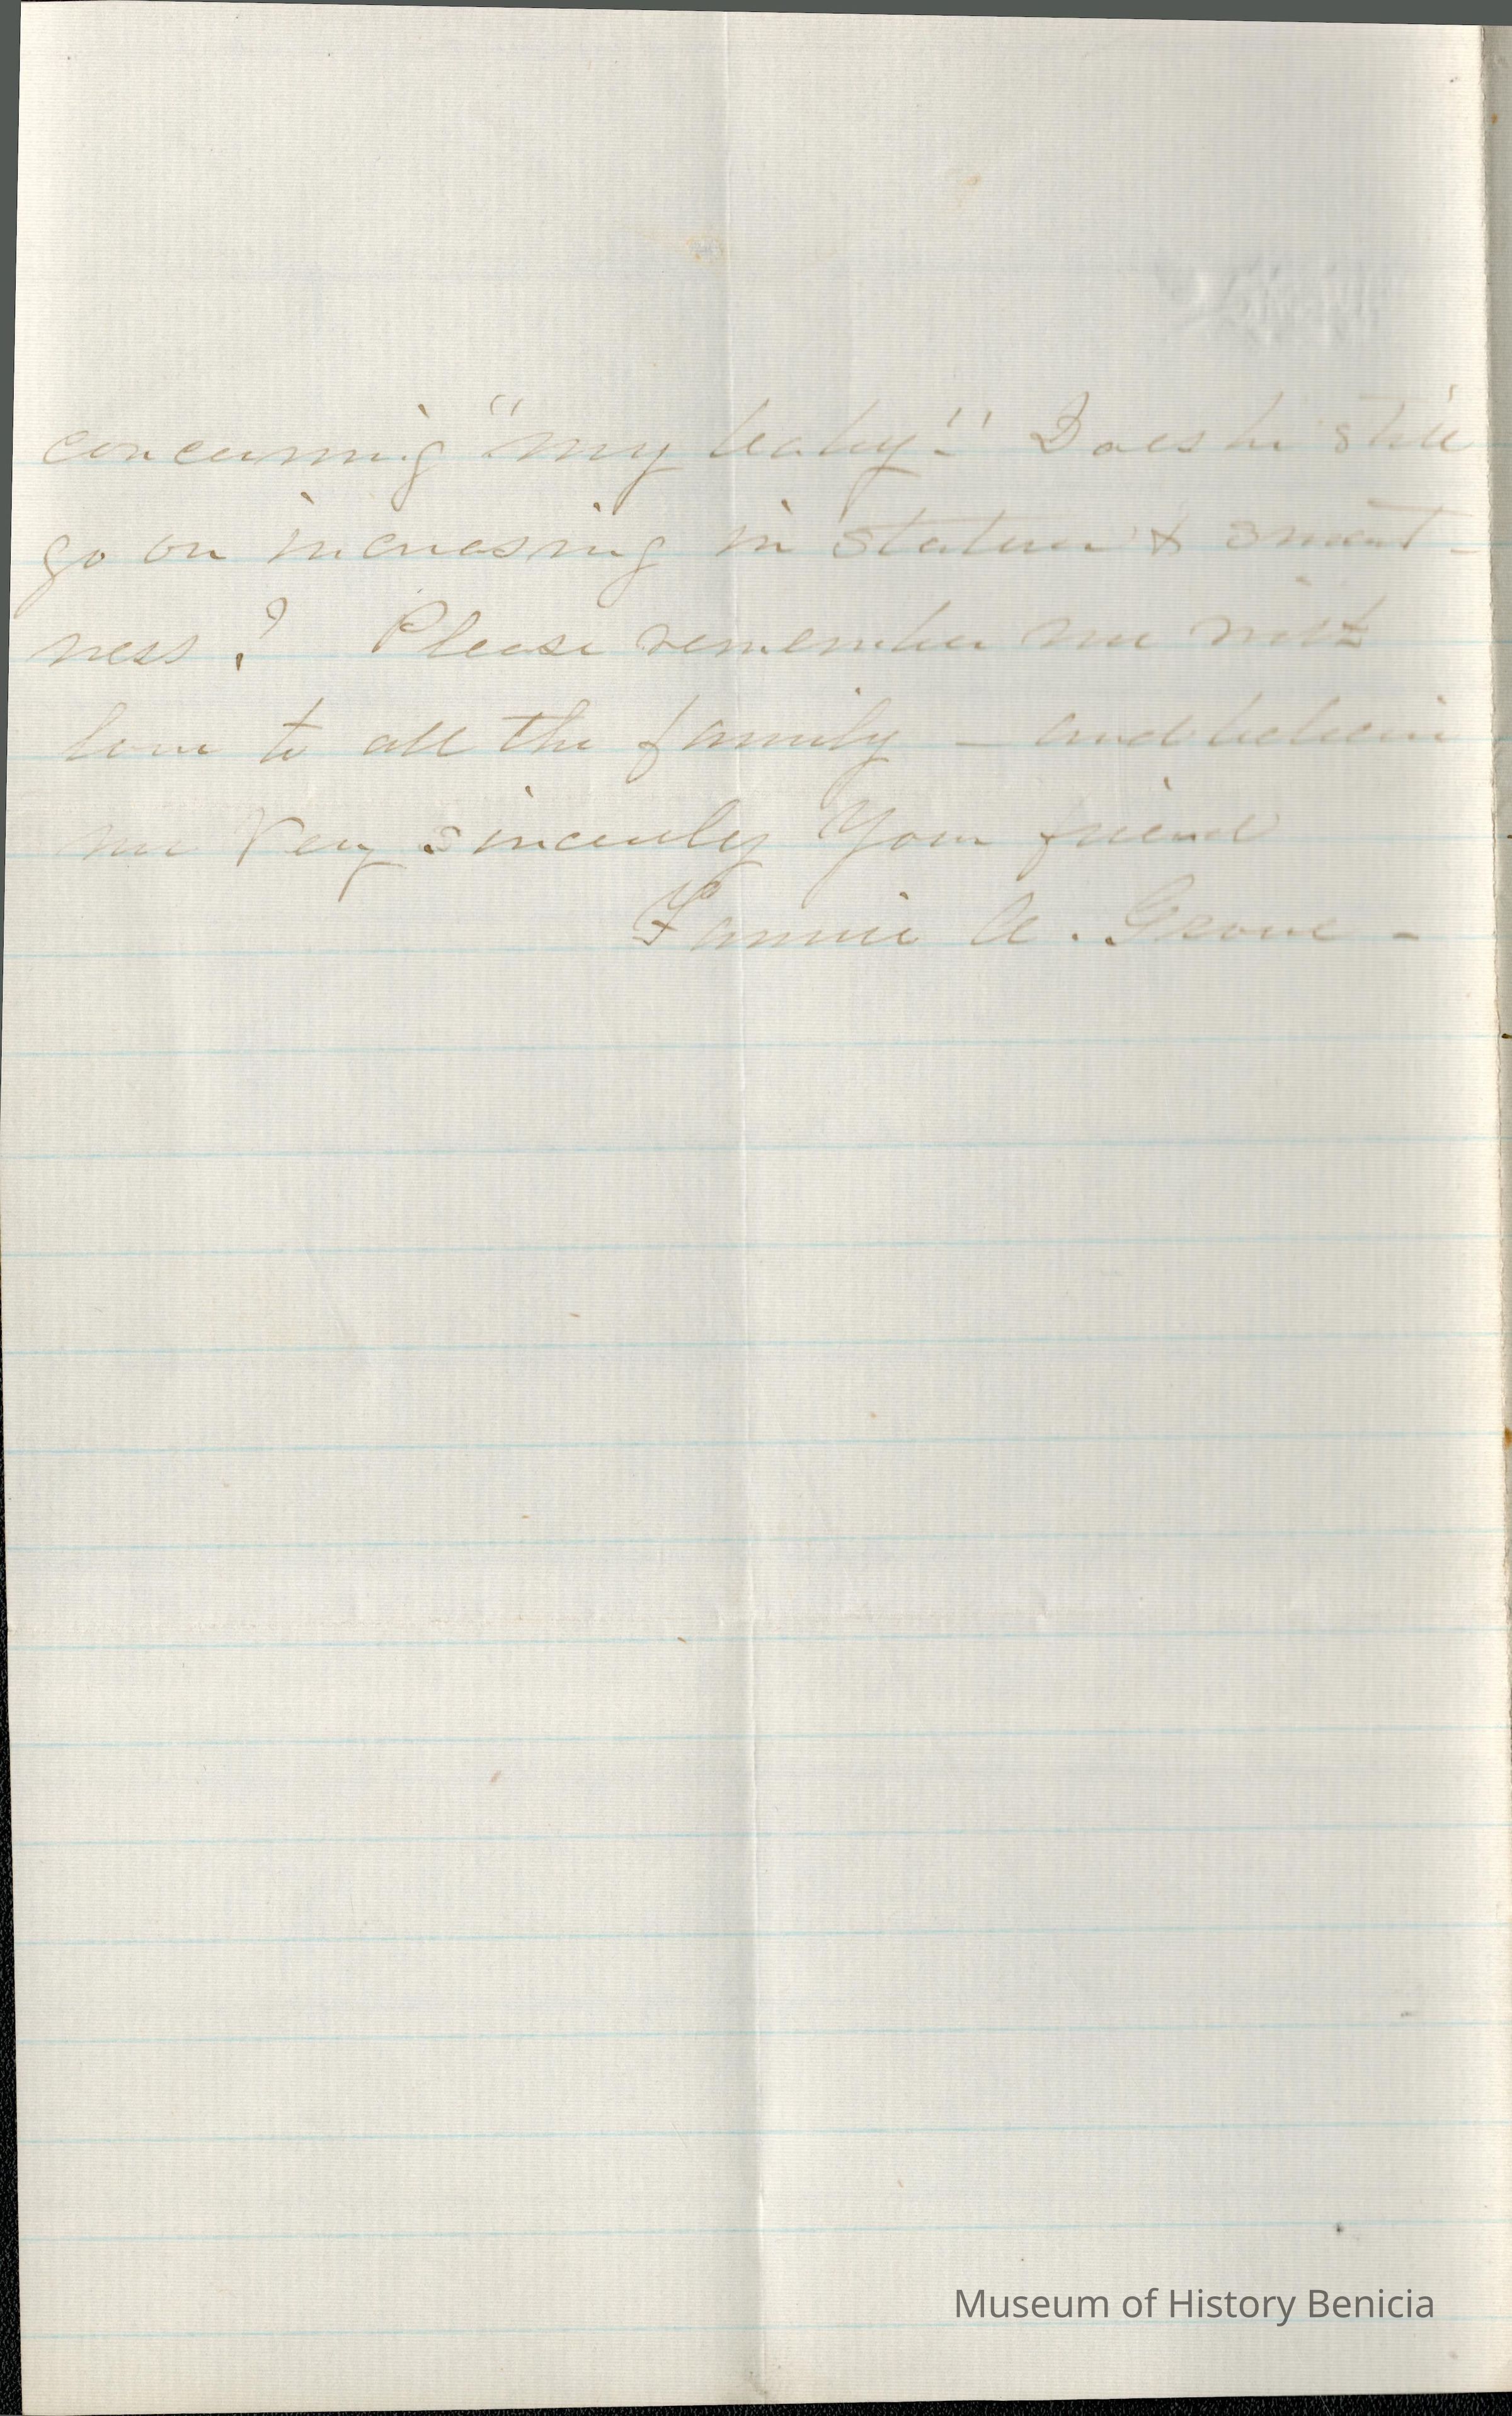 concerning "my baby." Does he still
go on increasing in stature & smart-
ness? Please remember me with
love to all the family - and believe
me Very sincerely Your friend
Fannie A. Grove -
Museum of History Benicia